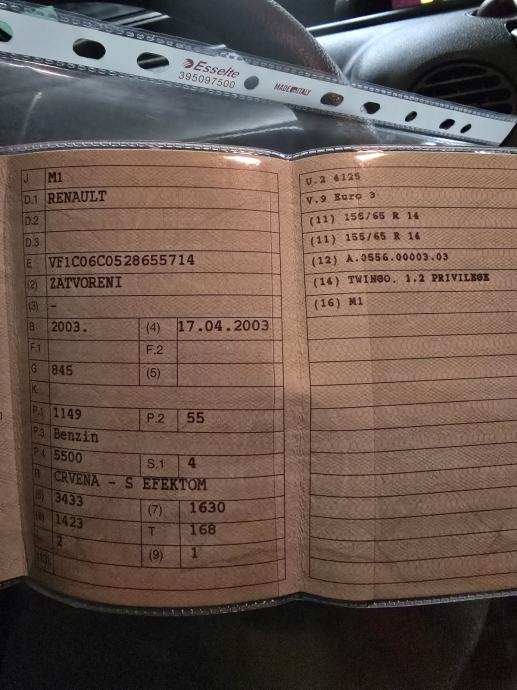 Esselte
395097500
MADE IN ITALY
J M1
D.1 RENAULT
D.2
D.3
E VF1C06C0528655714
(2) ZATVORENI
(3) -
B 2003. (4) 17.04.2003
F.1 F.2
G 845 (5)
K
P.1 1149 P.2 55
P.3 Benzin
P.4 5500 S.1 4
R CRVENA - S EFEKTOM
(6) 3433 (7) 1630
(8) 1423 T 168
2 (9) 1
U.2 4125
V.9 Euro 3
(11) 155/65 R 14
(11) 155/65 R 14
(12) A.0556.00003.03
(14) TWINGO. 1.2 PRIVILEGE
(16) M1